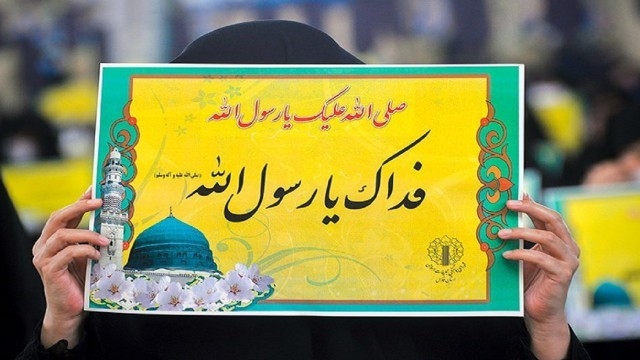 صلی الله علیک یا رسول الله
فداک یا رسول الله
(صلی الله علیه و آله وسلم)